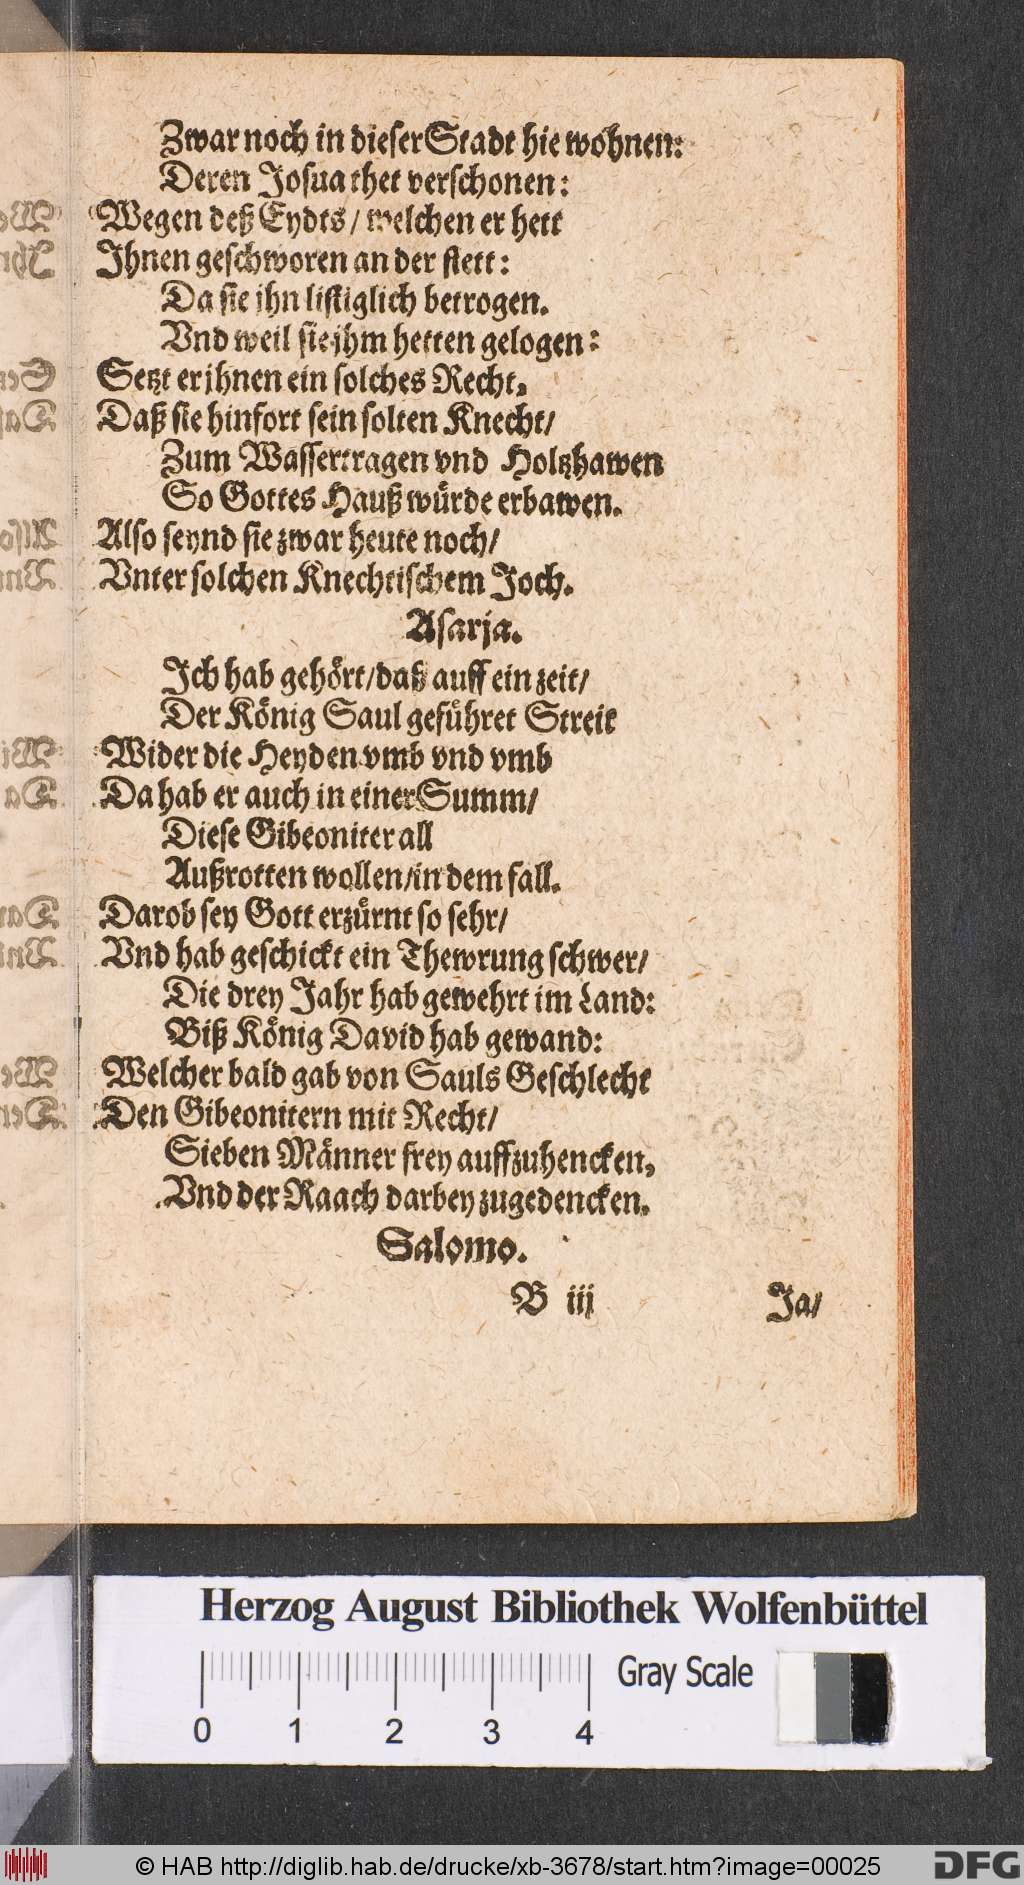 Zwar noch in dieser Stadt hie wohnen:
Deren Josua thet verschonen:
Wegen deß Eydts/ welchen er hett
Ihnen geschworen an der stett:
Da sie ihn listiglich betrogen.
Vnd weil sie jhm hetten gelogen:
Setzt er jhnen ein solches Recht,
Daß sie hinfort sein solten Knecht/
Zum Wassertragen vnd Holtzhawen
So Gottes Hauß würde erbawen.
Also seynd sie zwar heute noch/
Vnter solchen Knechtischem Joch.
Asarja.
Ich hab gehört/daß auff ein zeit/
Der König Saul geführet Streit
Wider die Heyden vmb vnd vmb
Da hab er auch in einer Summ/
Diese Gibeoniter all
Außrotten wollen/in dem fall.
Darob sey Gott erzürnt so sehr/
Vnd hab geschickt ein Thewrung schwer/
Die drey Jahr hab gewehrt im Land:
Biß König David hab gewand:
Welcher bald gab von Sauls Geschlecht
Den Gibeonitern mit Recht/
Sieben Männer frey auffzuhencken,
Vnd der Raach darbey zugedencken.
Salomo.
B iii Ja/
Herzog August Bibliothek Wolfenbüttel
Gray Scale
0 1 2 3 4
© HAB http://diglib.hab.de/drucke/xb-3678/start.htm?image=00025
DFG